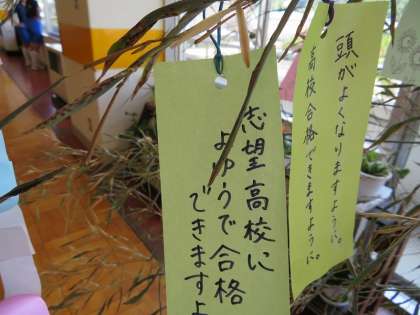 頭がよくなりますように。
高校合格できますように。
志望高校に
よゆうで合格
できますよ